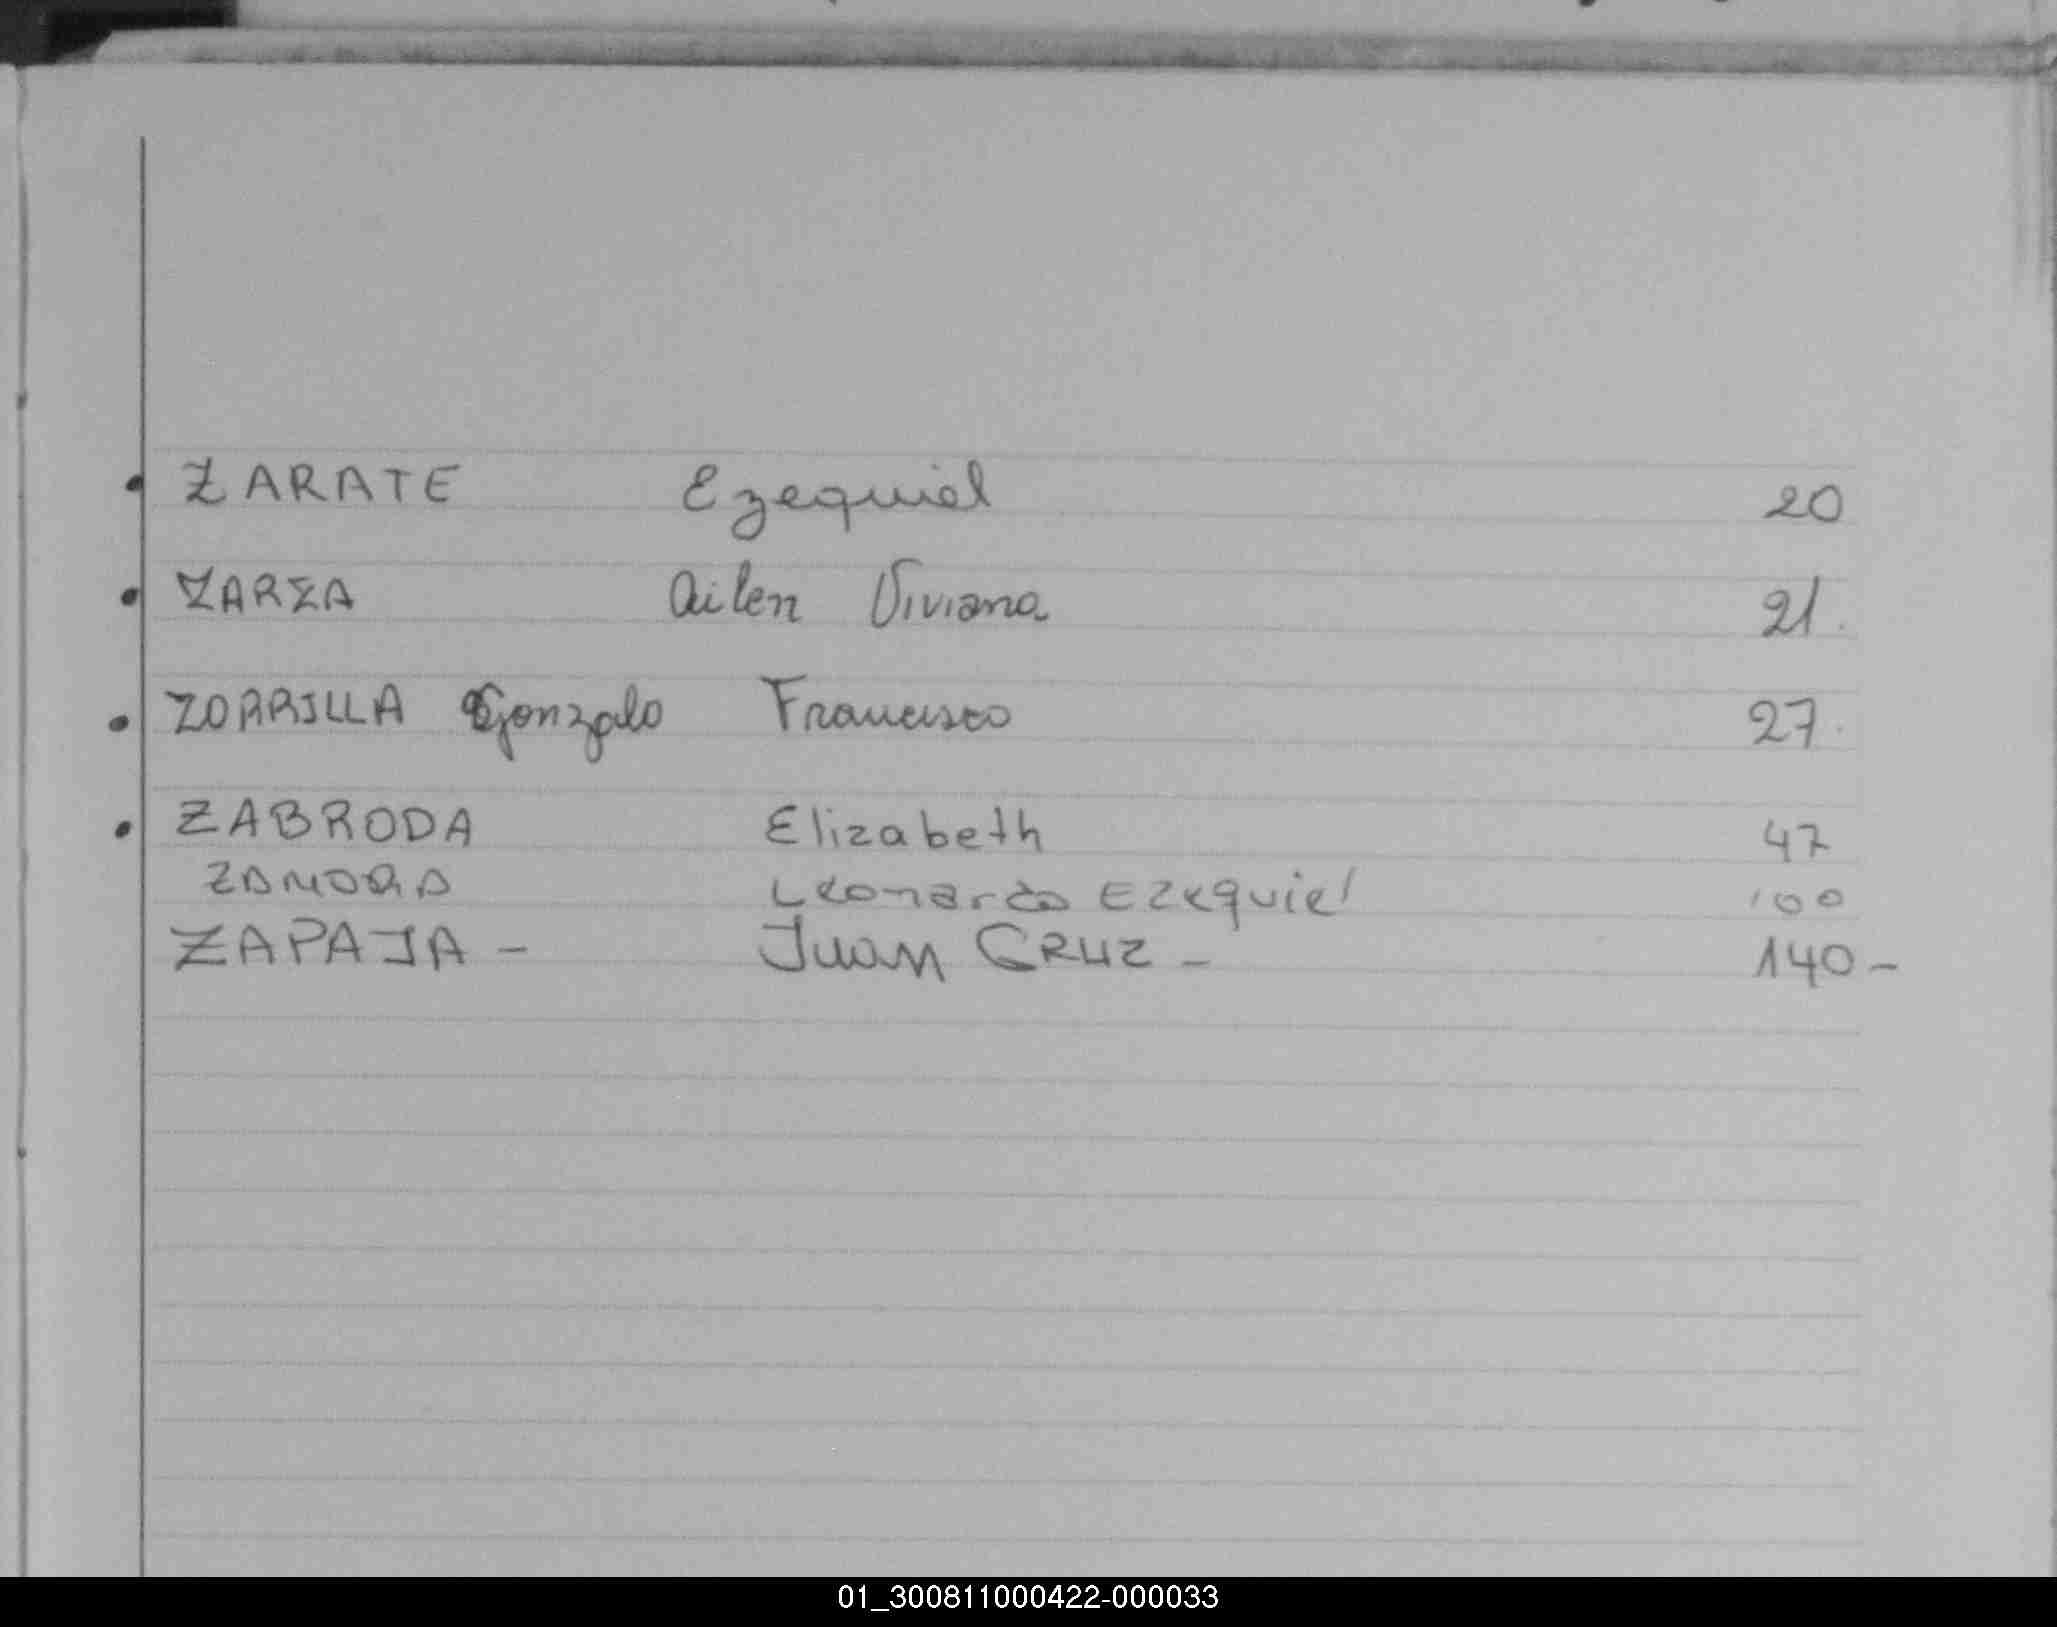 • ZARATE Ezequiel 20
• ZARZA Ailen Viviana 21.
• ZORRILLA Gonzalo Francisco 27.
• ZABRODA Elizabeth 47
ZAMORA Leonardo Ezequiel 100
ZAPAJA - Juan CRUZ - 140 -
01_300811000422-000033